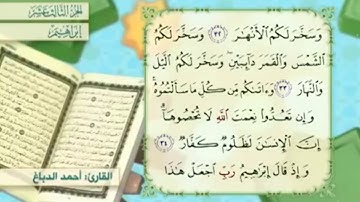 الجزء الثالث عشر
إبراهيم
وَسَخَّرَ لَكُمُ ٱلْأَنْهَٰرَ ٣٢ وَسَخَّرَ لَكُمُ
ٱلشَّمْسَ وَٱلْقَمَرَ دَآئِبَيْنِ ۖ وَسَخَّرَ لَكُمُ ٱلَّيْلَ
وَٱلنَّهَارَ ٣٣ وَءَاتَىٰكُم مِّن كُلِّ مَا سَأَلْتُمُوهُ ۚ
وَإِن تَعُدُّوا۟ نِعْمَتَ ٱللَّهِ لَا تُحْصُوهَآ ۗ
إِنَّ ٱلْإِنسَٰنَ لَظَلُومٌ كَفَّارٌ ٣٤
وَإِذْ قَالَ إِبْرَٰهِيمُ رَبِّ ٱجْعَلْ هَٰذَا
القارئ: أحمد الدباغ